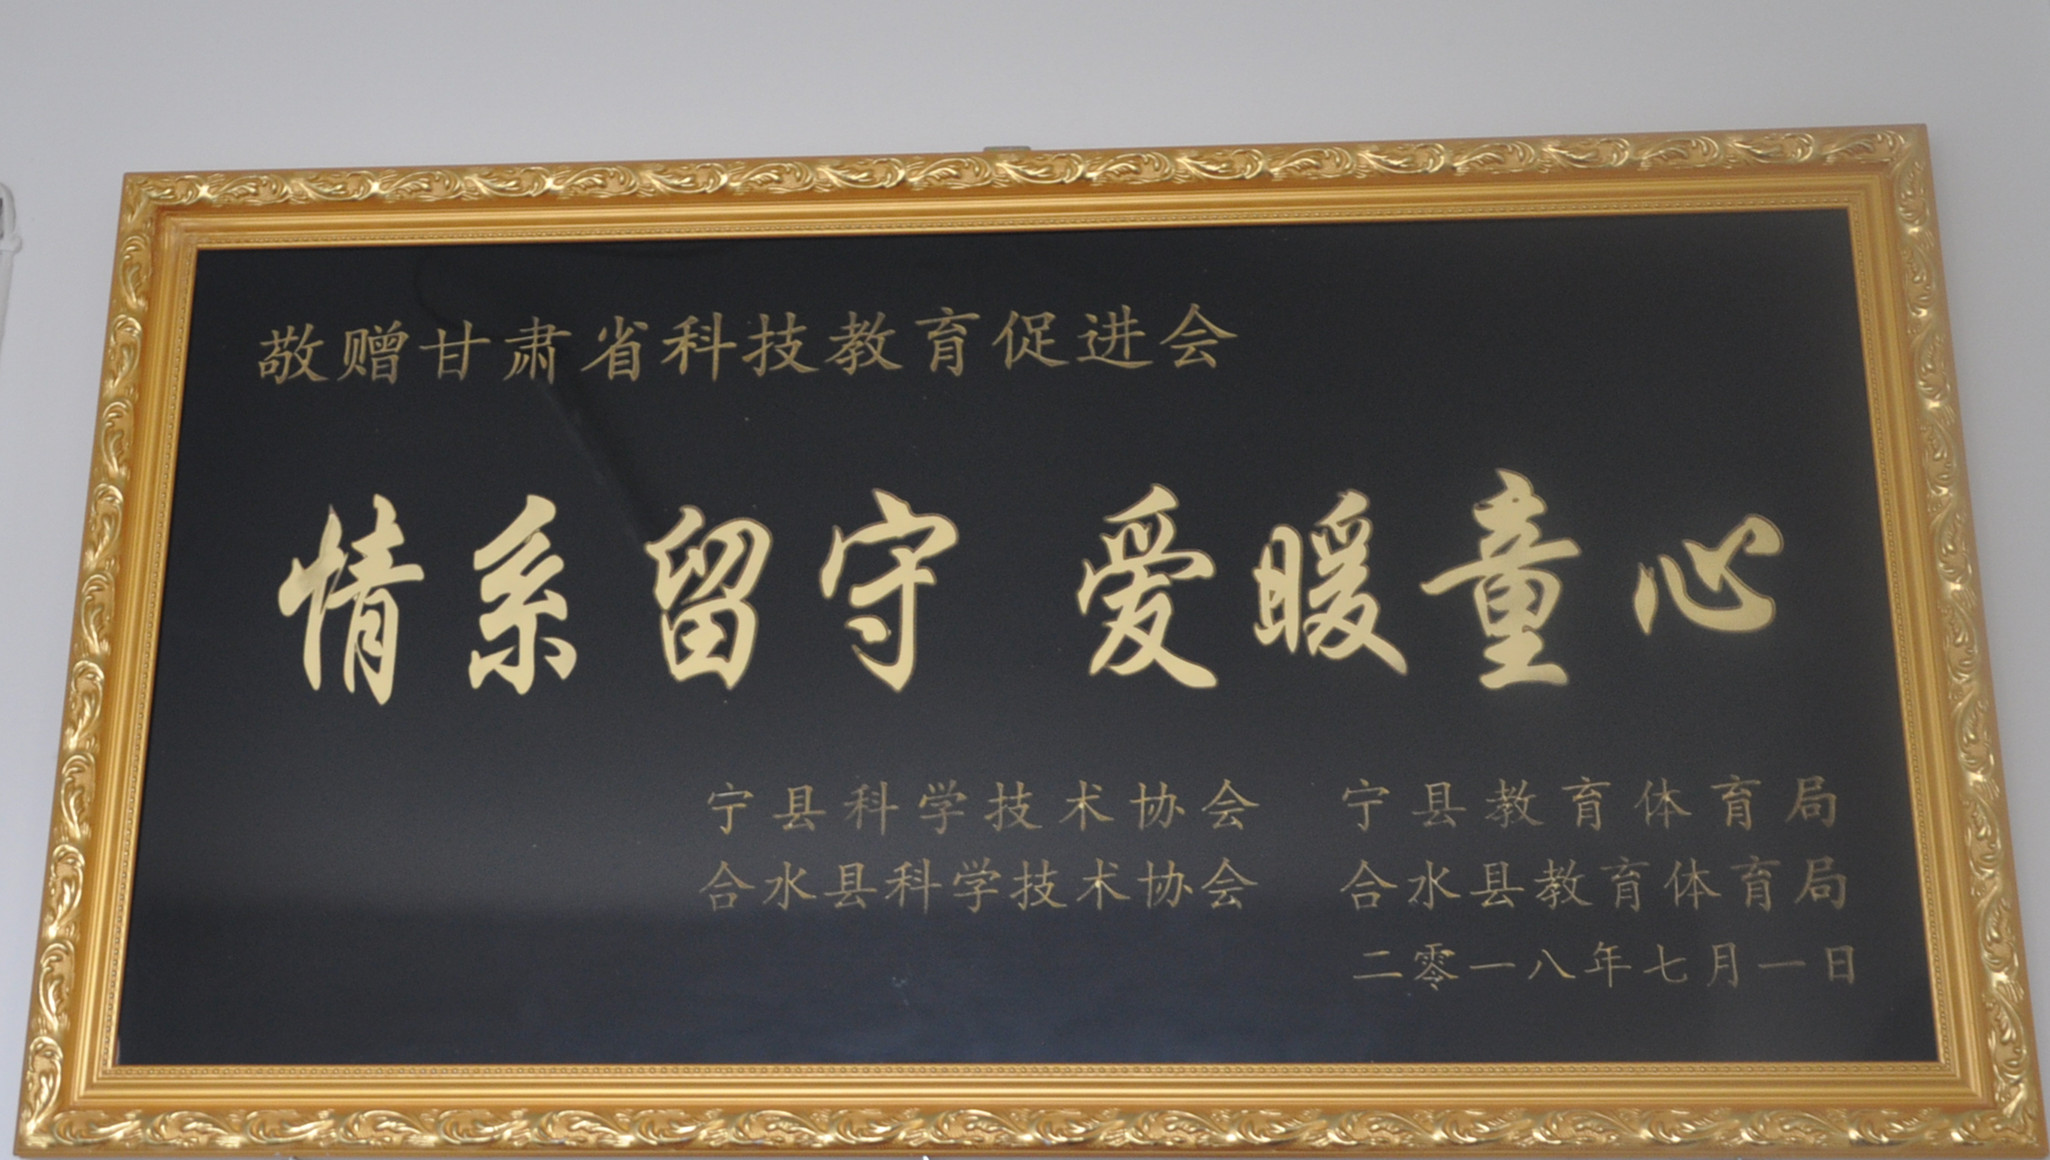 敬赠甘肃省科技教育促进会
情系留守 爱暖童心
宁县科学技术协会 宁县教育体育局
合水县科学技术协会 合水县教育体育局
二零一八年七月一日